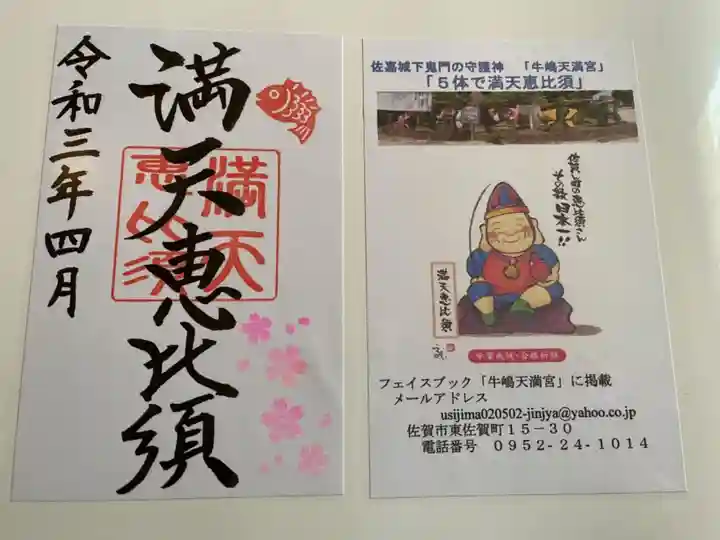 満天恵比須
令和三年四月
満天
恵比須
佐嘉城下鬼門の守護神 「牛嶋天満宮」
「5体で満天恵比須」
佐賀城下町の恵比須さん
その数日本一!!
満天恵比須
学業成就・合格祈願
フェイスブック「牛嶋天満宮」に掲載
メールアドレス
usijima020502-jinjya@yahoo.co.jp
佐賀市東佐賀町15-30
電話番号 0952-24-1014